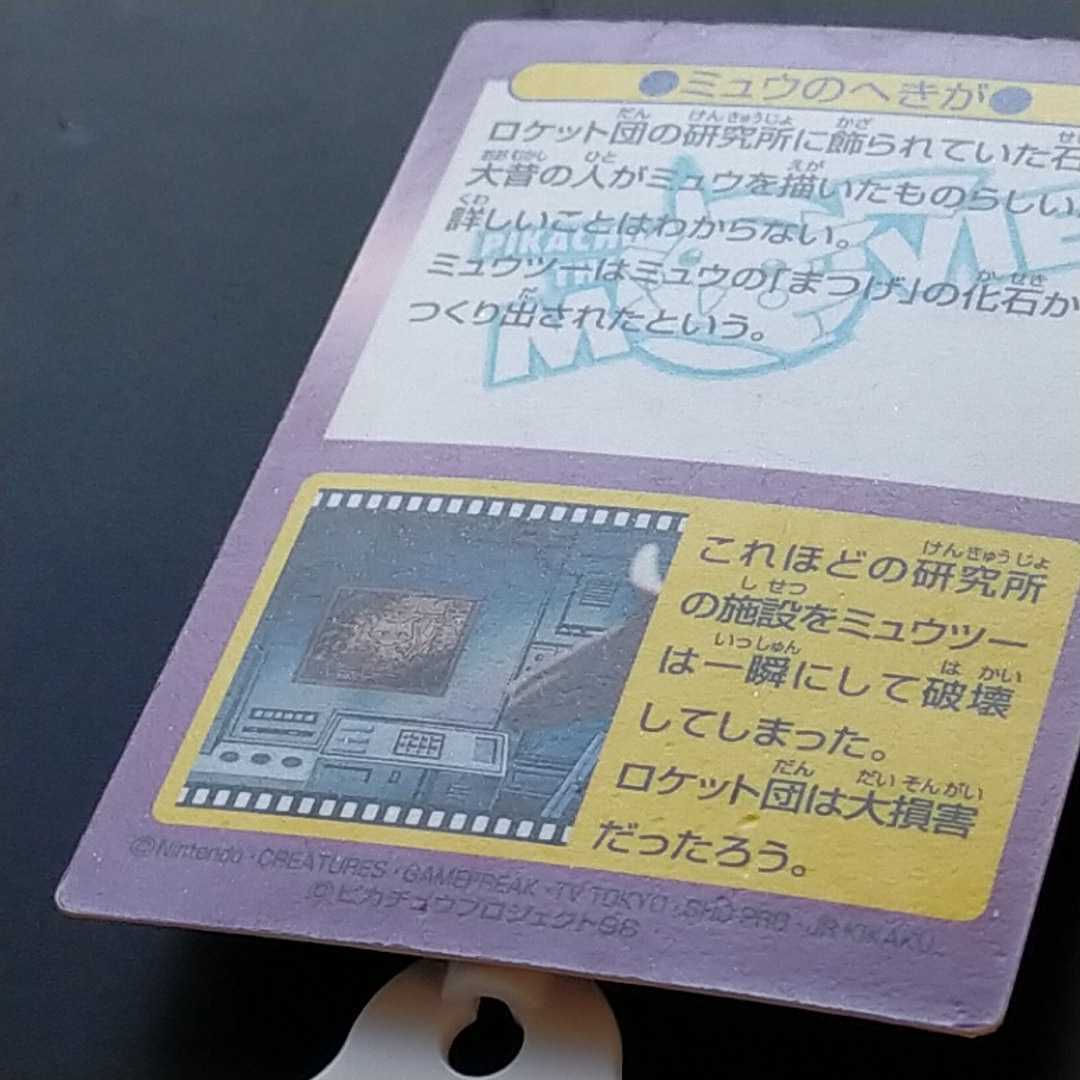 ●ミュウのへきが●
ロケット団の研究所に飾られていた石
大昔の人がミュウを描いたものらしい。
詳しいことはわからない。
ミュウツーはミュウの「まつげ」の化石か
つくり出されたという。
PIKACHU
THE
MOVIE
これほどの研究所
の施設をミュウツー
は一瞬にして破壊
してしまった。
ロケット団は大損害
だったろう。
©Nintendo・CREATURES・GAMEFREAK・TV TOKYO・SHO-PRO・JR KIKAKU
©ピカチュウプロジェクト98